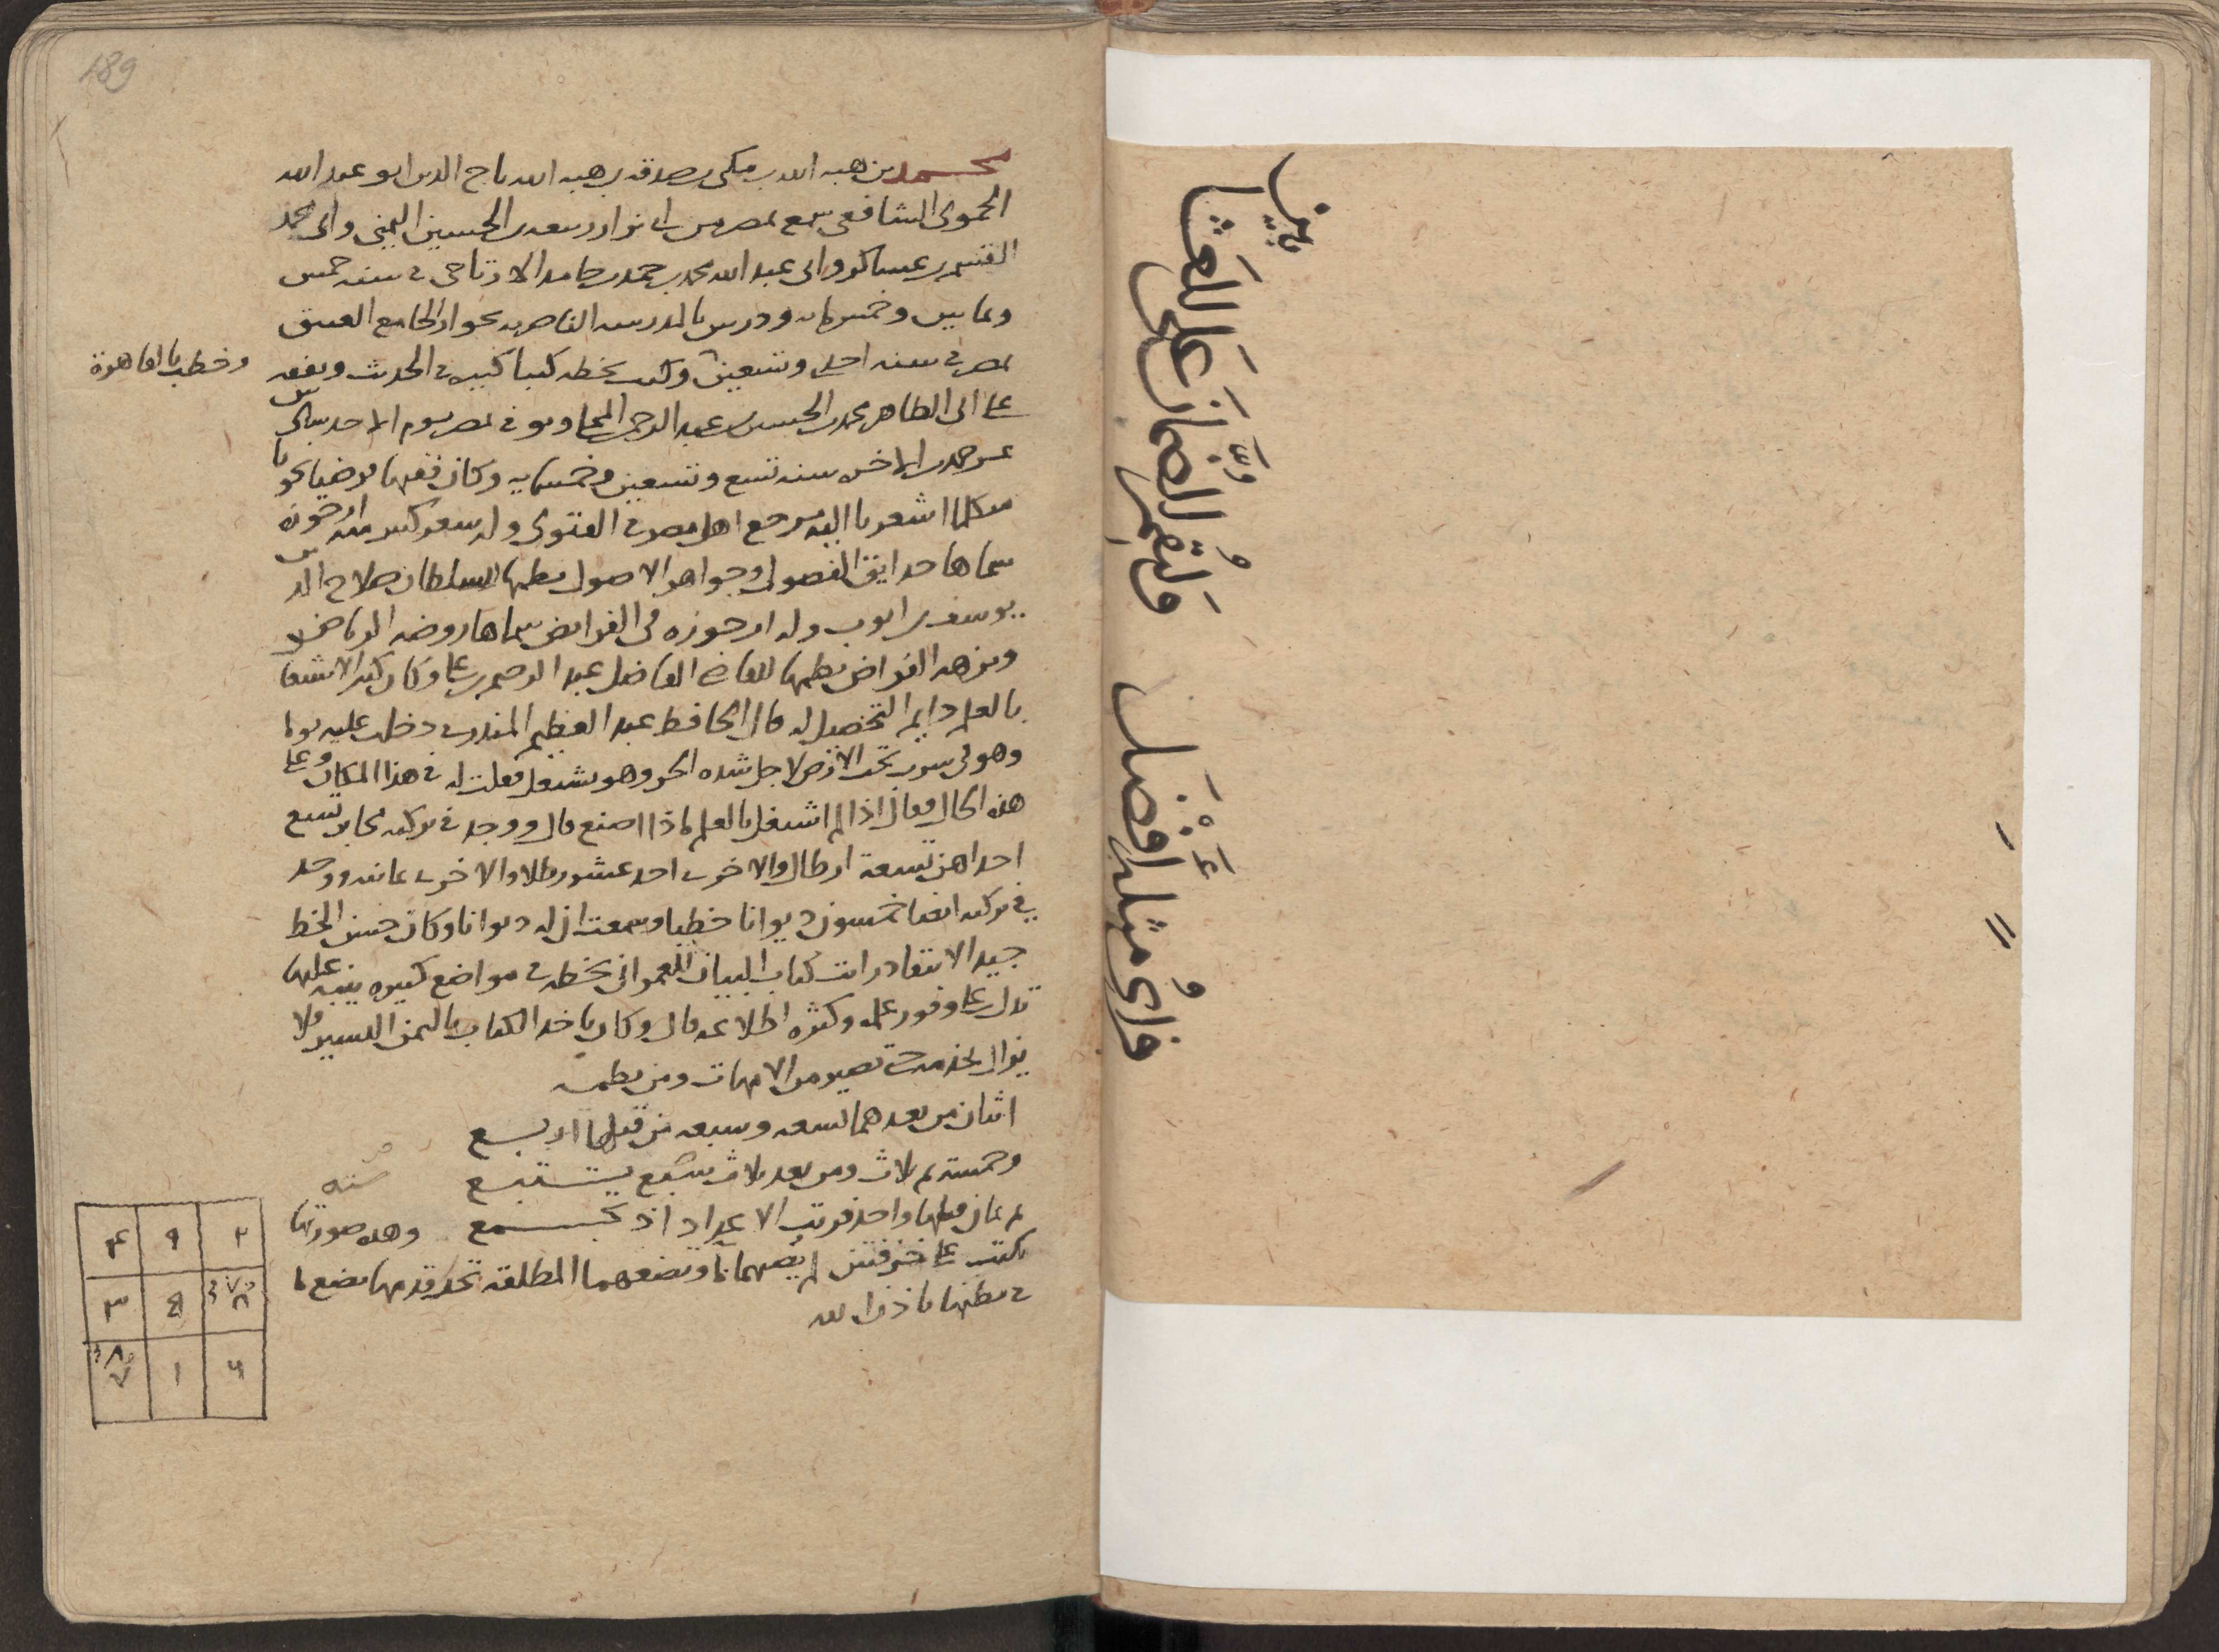 189
محمد بن هبه الله بن مكى بن صدقه بن هبه الله تاج الدين ابو عبد الله
الحموى الشافعى سمع بمصر من ابى نزار ربيعه بن الحسين اليمنى وابى محمد
القسم بن عساكر وابى عبد الله محمد بن حمد بن حامد الارتاحى فى سنه خمس
وثمانين وخمسمايه ودرس بالمدرسه الناصريه بجوار الجامع العتيق
بمصر فى سنه احدى وتسعين وكتب بخطه كتبا كثيره فى الحديث وتفقه
وخطب بالقاهرة
على ابى الطاهر محمد بن الحسين بن عبد الرحمن المحلى وتوفى بمصر يوم الاحد سادس
عشر جمدى الاخره سنه تسع وتسعين وخمسمايه وكان فقيها فرضيا نحويا
متكلما اشعريا اليه مرجع اهل مصر فى الفتوى وله شعر كثير منه ارجوزه
سماها حدايق الفصول وجواهر الاصول نظمها للسلطان صلاح الدين
يوسف بن ايوب وله ارجوزه فى الفرايض سماها روضه المرتاض
ونزهه الفراض نظمها للقاضى الفاضل عبد الرحيم بن على وكان كثير الاشتغال
بالعلم دايم التحصيل له قال الحافظ عبد العظيم المنذرى دخلت عليه يوما
وهو فى سرب تحت الارض لاجل شده الحر وهو يشتغل فقلت له فى هذا المكان وعلى
هذه الحال فقال اذا لم اشتغل بالعلم ماذا اصنع قال ووجد فى تركته محابر تسع
احداهن تسعة ارطال والاخرى احد عشر رطلا والاخرى ثمانيه ووجد
فى تركته ايضا خمسون ديوانا خطبا وسمعت ان له ديوانا وكان حسن الخط
جيد الانتقاد رايت كتاب البيان للعمرانى بخطه فى مواضع كثيره ينبه عليها
تدل على وفور علمه وكثره اطلاعه قال وكان ياخذ الكتاب بالثمن اليسير فلا
يزال يخدمه حتى يصير من الامهات ومن نظمه
اثنان من بعدهما تسعه وسبعه من قبلها اربع
وخمسه ثم ثلاث ومن بعد ثلاث ستبع يستتبع
سته
ثم ثمان قبلها واحد فرتب الاعداد اذ تجمع وهذه صورتها
تكتب على خزفتين لم يصبهما ما وتضعهما المطلقه تحت قدميها تضع ما
فى بطنها باذن الله
٢ ٩ ٤
٧ ٣
٦ ١ ٨
ولتقصر الضمان على للعشا
فراى مثله افضل